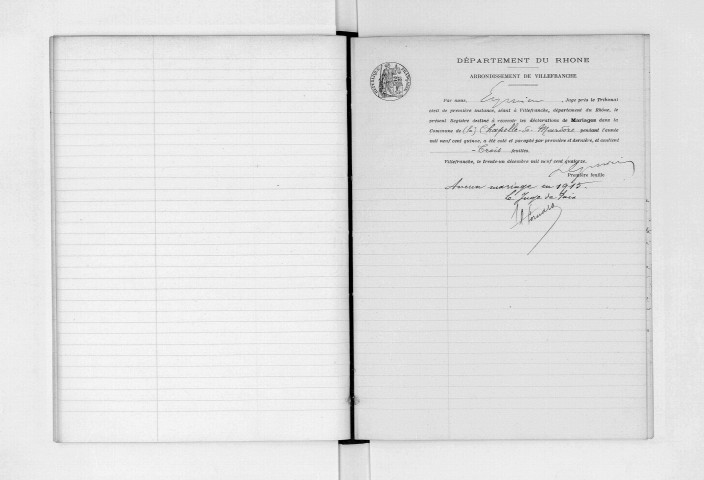 DÉPARTEMENT DU RHONE
ARRONDISSEMENT DE VILLEFRANCHE
Par nous, Juge près le Tribunal
civil de première instance, séant à Villefranche, département du Rhône, le
présent Registre destiné à recevoir les déclarations de Mariages dans la
Commune de (la) Chapelle-de-Mardore pendant l'année
mil neuf cent quinze, a été coté et paraphé par première et dernière, et contient
Trois feuilles.
Villefranche, le trente-un décembre mil neuf cent quatorze.
Première feuille
Aucun mariage en 1915.
Le Juge de Paix